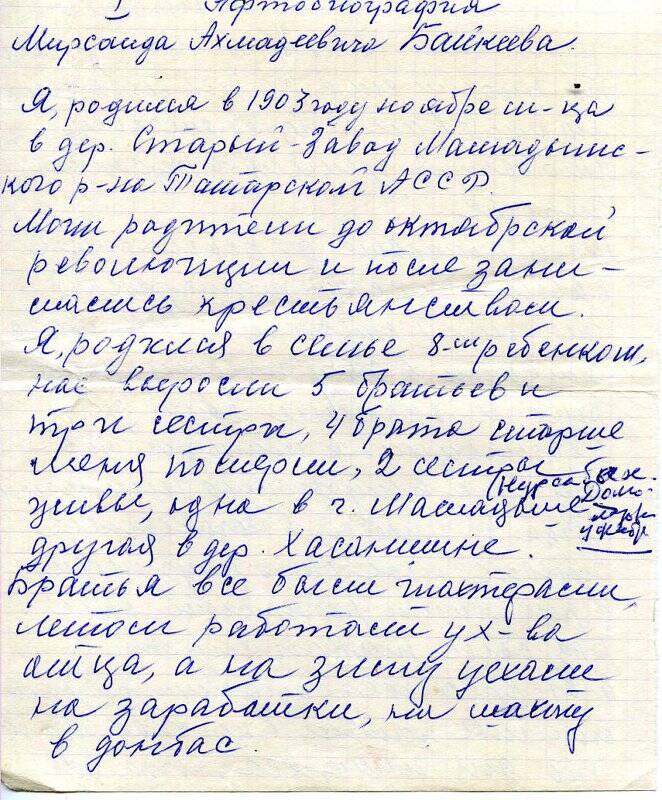 I Афтобиография
Мирсаида Ахмадеевича Байкеева.
Я, родился в 1903 году ноябре м-ца
в дер. Старый-Завод Мамадышс-
кого р-на Татарской АССР.
Мои родители до октябрской
революции и после зани-
мались крестьянством.
Я, родился в семье 8-м ребенком,
нас выросли 5 братьев и
три сестры, 4 брата старше
меня померли, 2 сестры
живы, одна в г. Мамадыше
другая в дер. Хасаншине.
Братья все были шахтерами,
летом работали у х-ва
отца, а на зиму уехали
на заработки, на шахту
в донбас.